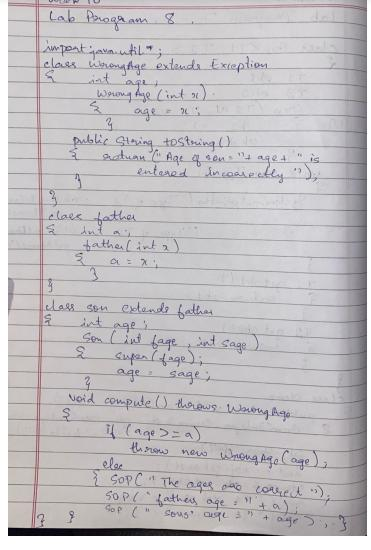 Lab Program 8.
import java.util*;
class WrongAge extends Exception
{ int age;
WrongAge (int x)
{ age = x;
}
public String toString()
{ return ("Age of son = "+ age + " is
entered incorrectly");
}
}
class father
{ int a;
father(int x)
{ a = x;
}
}
class son extends father
{ int age;
Son (int fage, int sage)
{ super(fage);
age = sage;
}
void compute() throws WrongAge
{
if (age >= a)
throw new WrongAge(age);
else
{ SOP(" The ages are correct ");
SOP(" fathers age = " + a);
SOP (" sons' age = " + age); }
} }